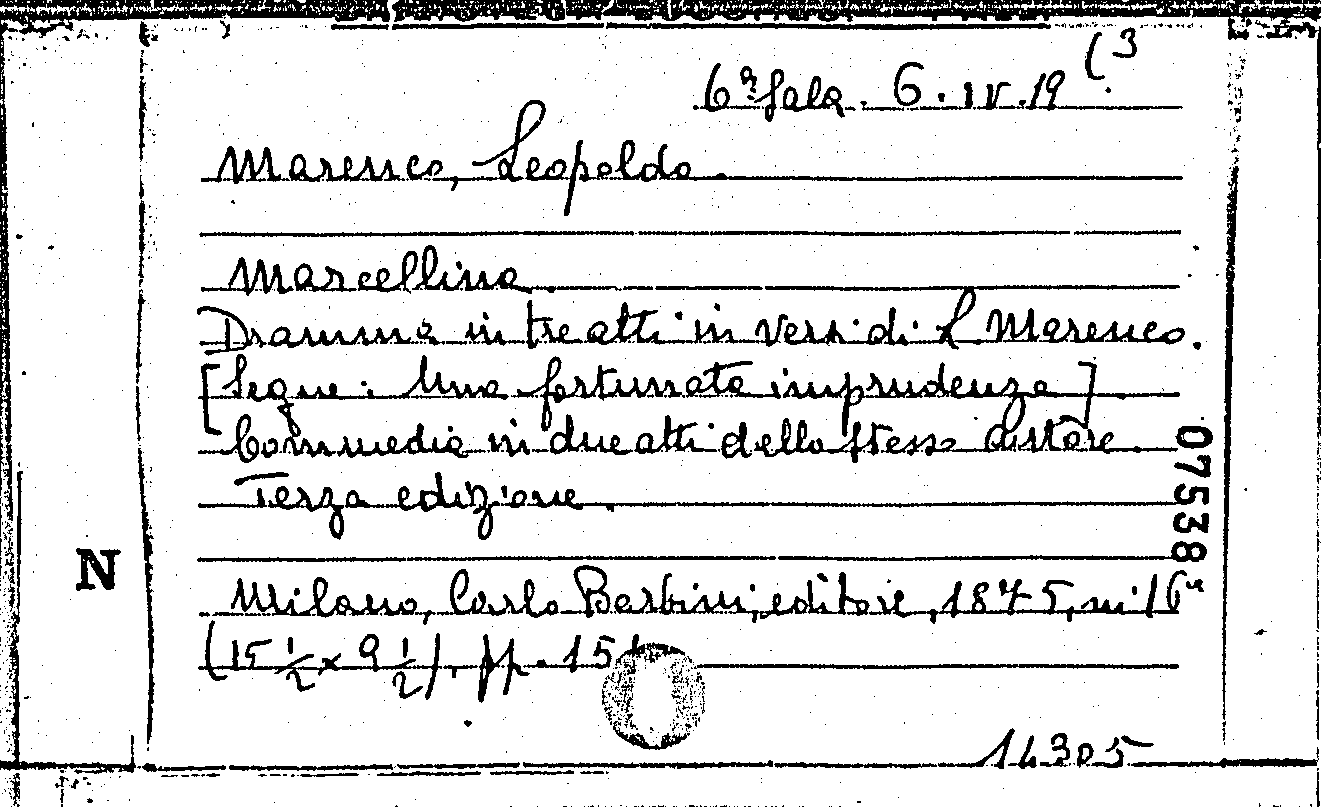 6ª Sala. 6. IV. 19 (3
Marenco, Leopoldo.
Marcellina.
Dramma in tre atti in versi di L Marenco.
[Segue: Una fortunata imprudenza].
Commedia in due atti dello stesso autore.
Terza edizione.
07538
N
Milano, Carlo Barbini, editore, 1875, in 16º
(15 1/2 x 9 1/2), pp. 15
14305